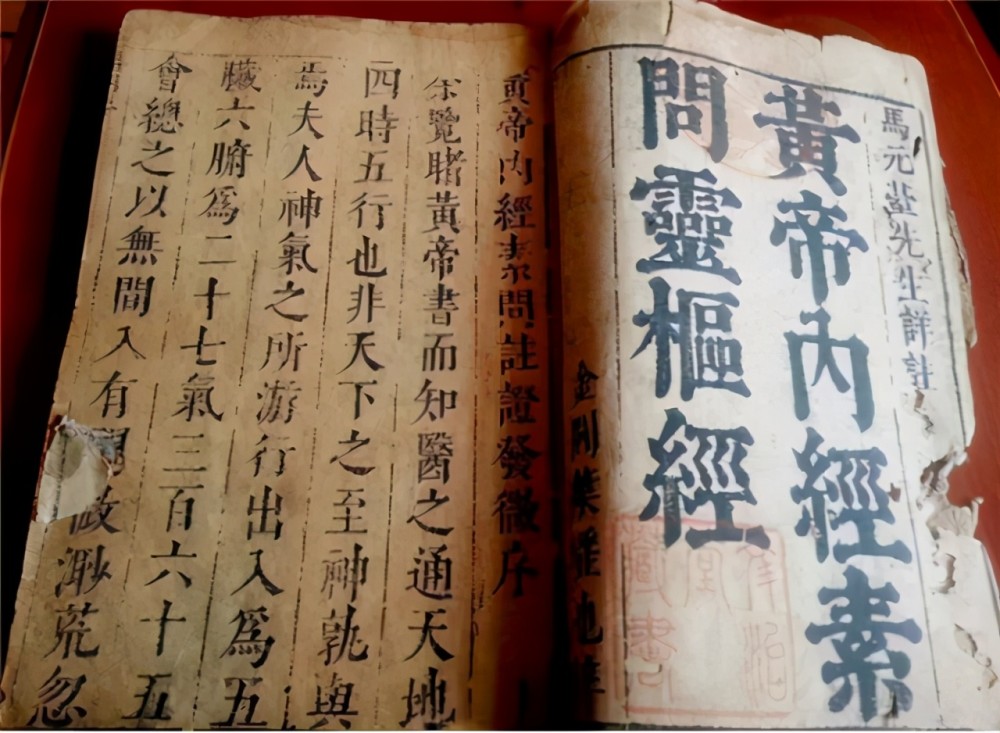 馬元臺先生詳註
黃帝內經素
問靈樞經
金閶葉
藏書
黃帝內經素問註證發微序
余覽睹黃帝書而知醫之通天地
四時五行也非天下之至神孰與
焉夫人神氣之所游行出入爲五
臟六腑爲二十七氣三百六十五
會總之以無間入有間渺荒忽